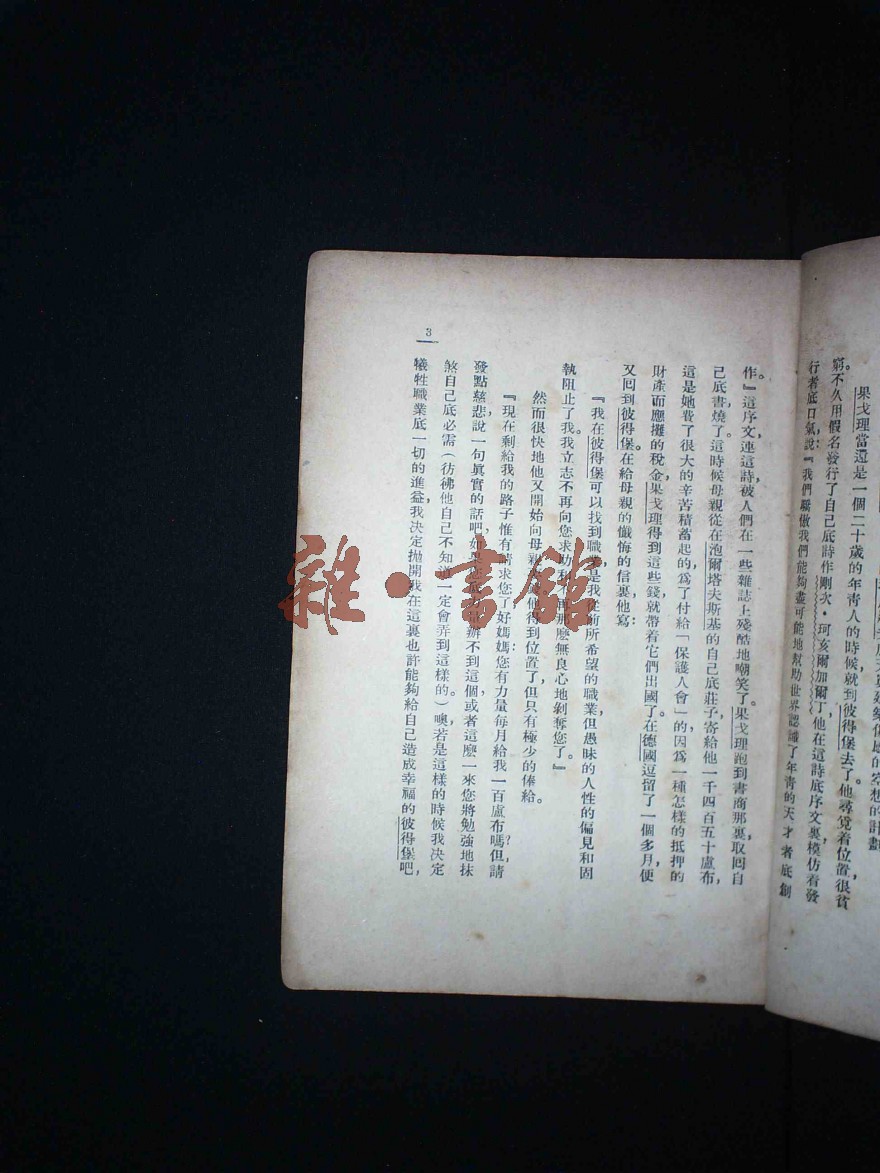 果戈理當還是一個二十歲的年青人的時候就到彼得堡去了。他尋覓着位置很貧
窮。不久用假名發行了自己底詩作剛次·珂亥爾加爾丁，他在這詩底序文裏模仿着發
行者底口氣說：『我們驕傲我們能夠盡可能地幫助世界認識了年青的天才者底創
作。』這序文連這詩被人們在一些雜誌上殘酷地嘲笑了。果戈理跑到書商那裏取回自
己底書燒了。這時候母親從在泡爾塔夫斯基的自己底莊子寄給他一千四百五十盧布，
這是她費了很大的辛苦積蓄起的，爲了付給「保護人會」的因爲一種怎樣的抵押的
財產而應攤的稅金。果戈理得到這些錢就帶着它們出國了。在德國逗留了一個多月便
又回到彼得堡。在給母親的懺悔的信裏他寫：
『我在彼得堡可以找到職業，是我從前所希望的職業，但愚昧的人性的偏見和固
執阻止了我。我立志不再向您求助和不再那麽無良心地剝奪您了。』
然而很快地他又開始向母親他得到位置了，但只有極少的俸給。
『現在剩給我的路子惟有請求您了，好媽媽：您有力量每月給我一百盧布嗎？但請
發點慈悲說一句眞實的話吧，如果您底力量辦不到這個，或者這麽一來您將勉強地抹
煞自己底必需（彷彿他自己不知道一定會弄到這樣的。）噢，若是這樣的時候，我決定
犧牲職業底一切的進益，我決定拋開我在這裏也許能夠給自己造成幸福的彼得堡吧，
3
雜·書館